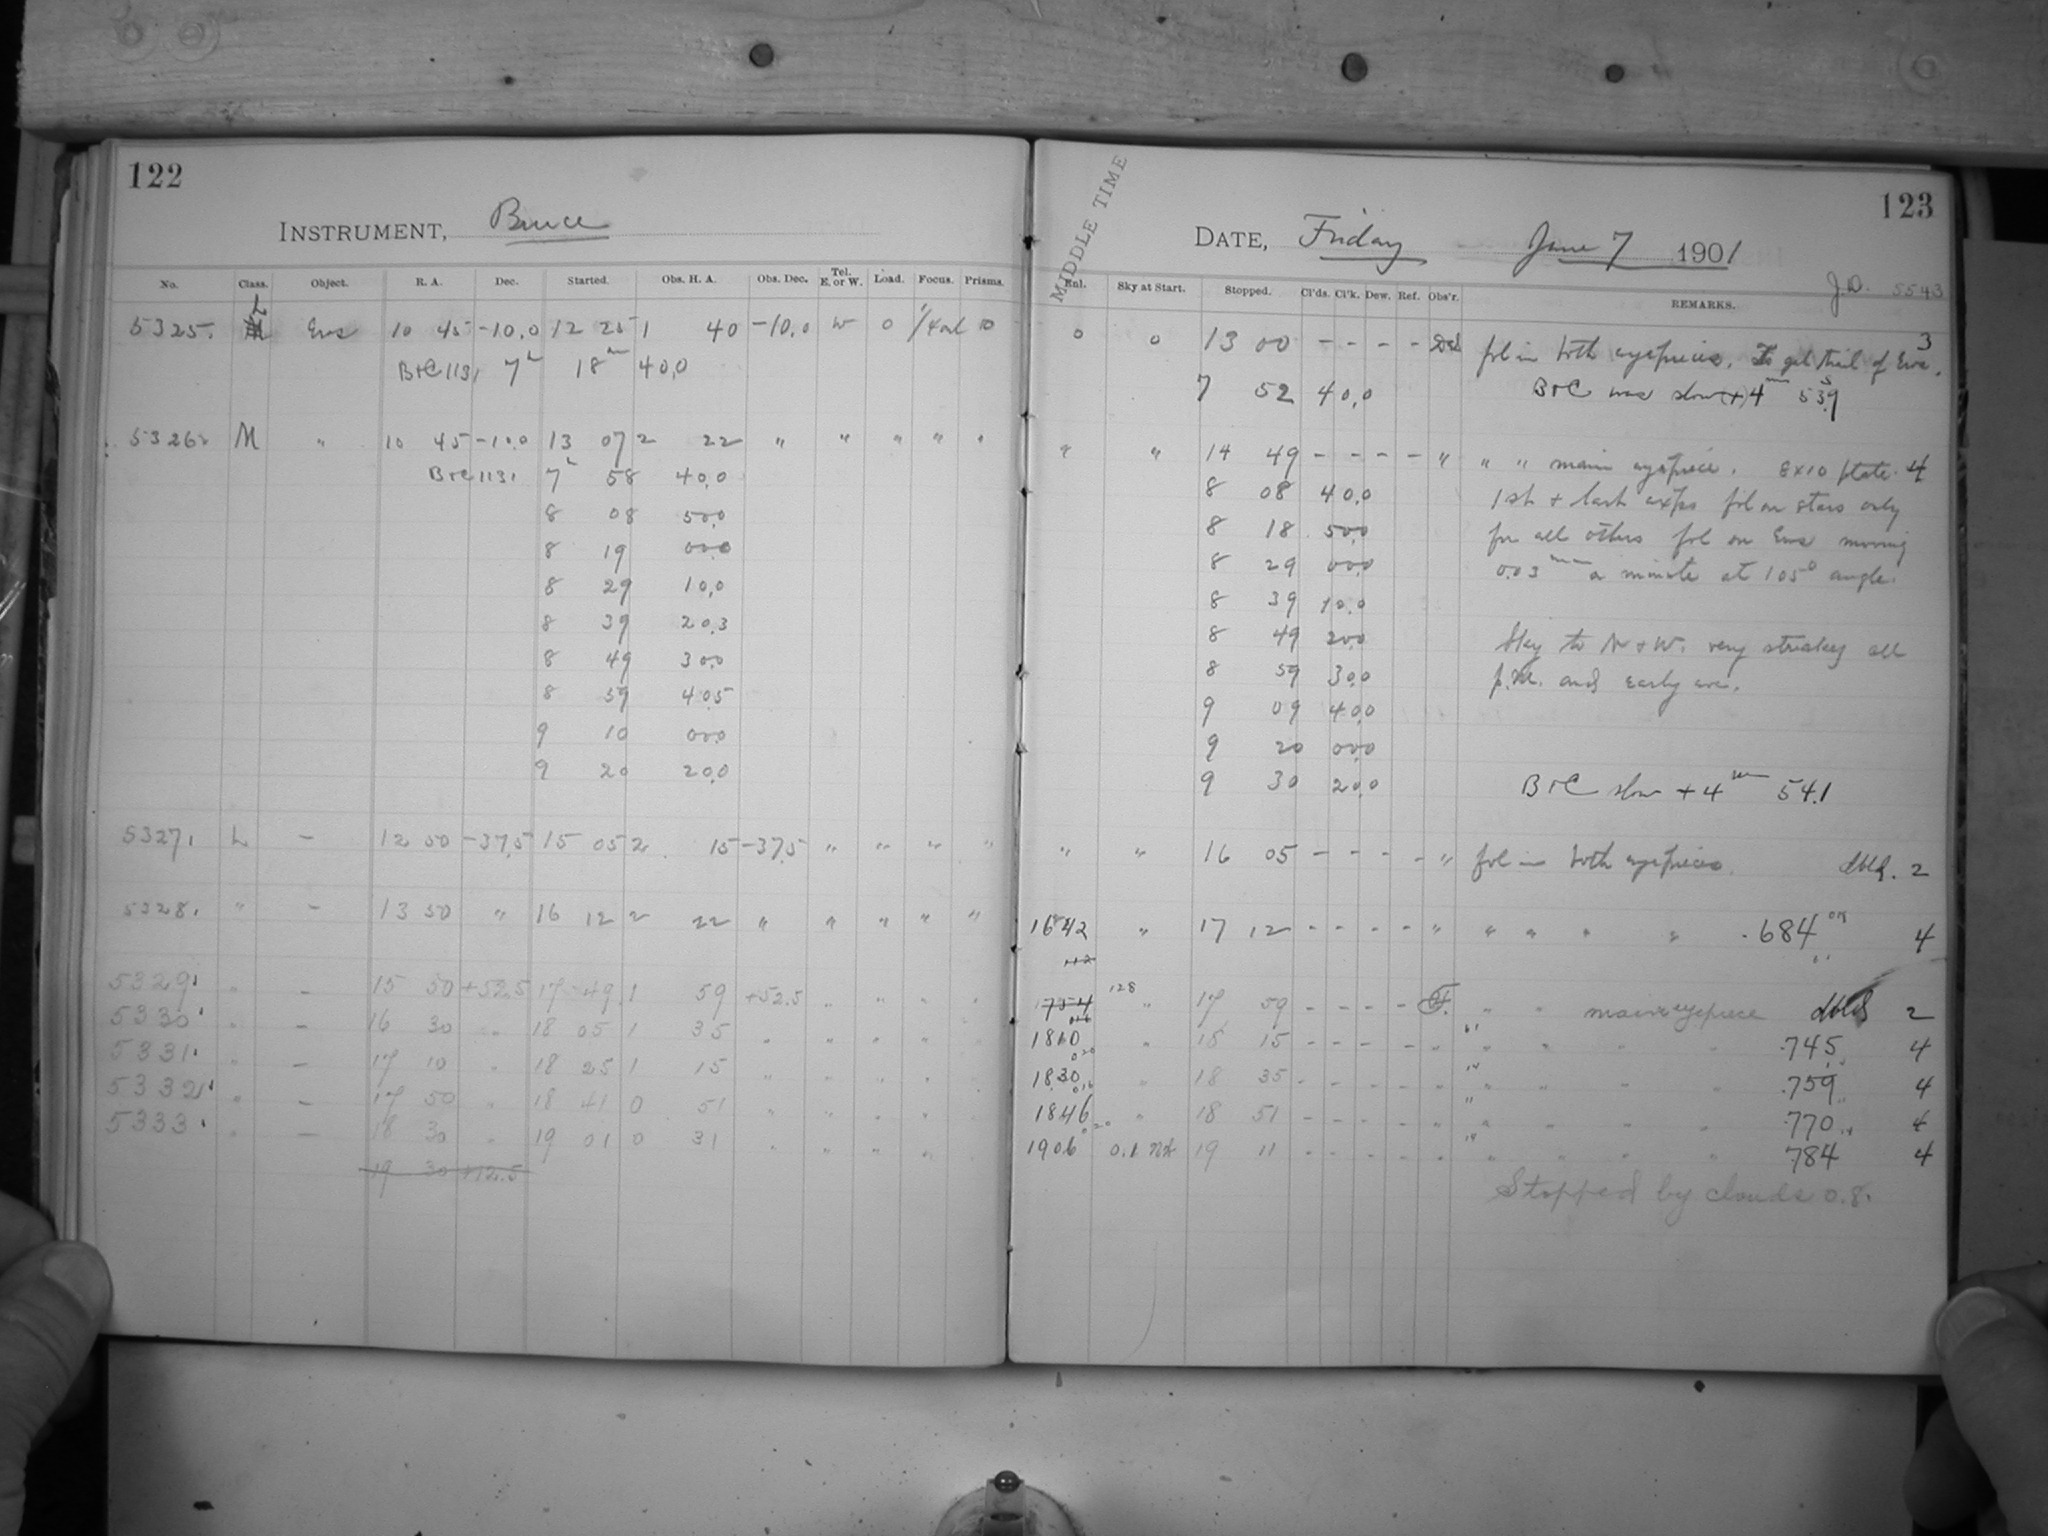 122
INSTRUMENT, Bruce
No. Class. Object. R. A. Dec. Started. Obs. H. A. Obs. Dec. Tel. E. or W. Load. Focus. Prisms.
5325. L Eros 10 45 -10.0 12 25 1 40 -10.0 W 0 10
B+C 1131 7h 18m 40.0
5326. M " 10 45 -10.0 13 07 2 22 " " " " "
B+C 1131 7h 58 40.0
8 08 50.0
8 19 00.0
8 29 10.0
8 39 20.3
8 49 30.0
8 59 40.5
9 10 00.0
9 20 20.0
5327. L - 12 50 -37.5 15 05 2 15 -37.5 " " " "
5328. " - 13 50 " 16 12 2 22 " " " " "
5329. " - 15 50 +52.5 17 49 1 59 +52.5 " " " "
5330. " - 16 30 " 18 05 1 35 " " " " "
5331. " - 17 10 " 18 25 1 15 " " " " "
5332. " - 17 50 " 18 41 0 51 " " " " "
5333. " - 18 30 " 19 01 0 31 " " " " "
19 30 +12.5
123
MIDDLE TIME
DATE, Friday June 7 1901
J.D. 5543
Enl. Sky at Start. Stopped. Cl'ds. Cl'k. Dew. Ref. Obs'r. REMARKS.
0 0 13 00 - - - - fol in both eyepieces. To get trail of Eros. 3
7 52 40.0 B+C was slow (+) 4m 53.9s
" " 14 49 - - - - " " " main eyepiece. 8x10 plate. 4
8 08 40.0 1st + last exps fol on stars only
8 18 50.0 for all others fol on Eros moving
8 29 00.0 0.03mm a minute at 105° angle.
8 39 10.0
8 49 20.0 Sky to N + W. very streaky all
8 59 30.0 p.m. and early eve.
9 09 40.0
9 20 00.0
9 30 20.0 B+C slow + 4m 54.1
" " 16 05 - - - - " fol in both eyepieces. dbld. 2
1642 " 17 12 - - - - " " " " " .684 4
1754 128 " 17 59 - - - - F. " " main eyepiece dbld 2
1810 " 18 15 - - - - " " " " " .745 4
1830 " 18 35 - - - - " " " " " .759 4
1846 " 18 51 - - - - " " " " " .770 4
1906 0.1 N+ 19 11 - - - - " " " " " .784 4
Stopped by clouds 0.8.